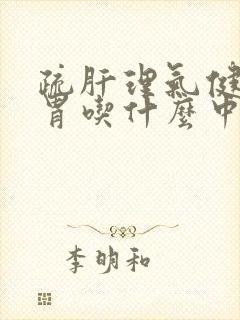 疏肝理氣健
胃喫什麼中
李明和